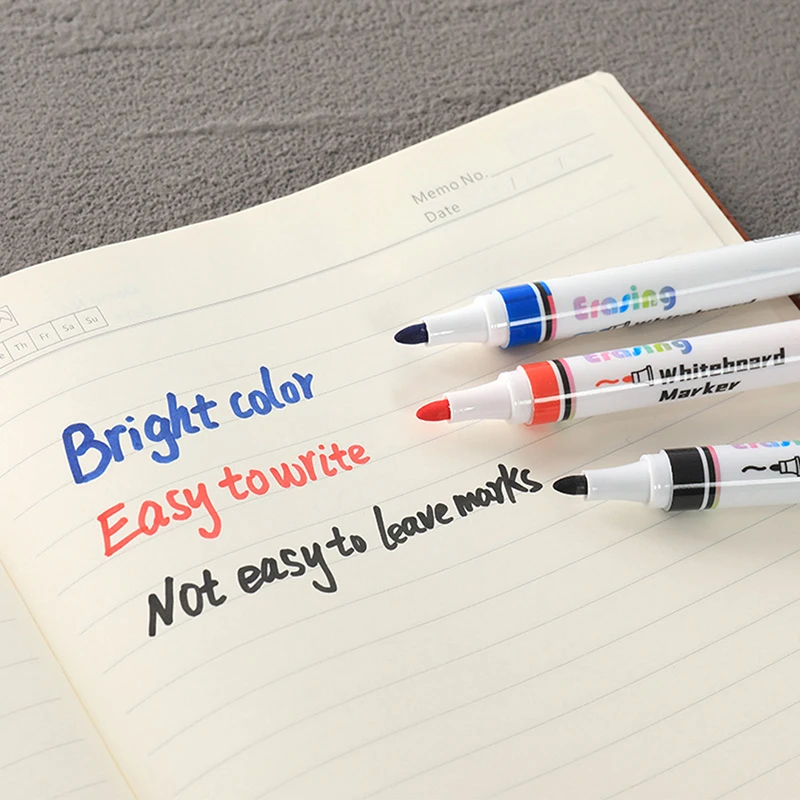 Memo No.
Date / /
Th Fr Sa Su
Bright color
Easy to write
Not easy to leave marks
Erasing
Erasing
Whiteboard
Marker